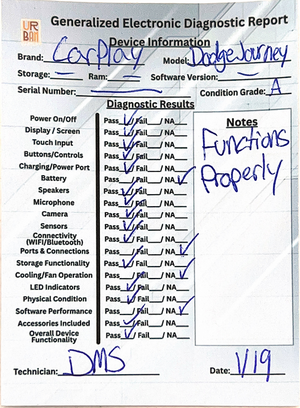 UR
BAN
Generalized Electronic Diagnostic Report
Device Information
Brand: CarPlay Model: Dodge Journey
Storage: — Ram: — Software Version: —
Serial Number: — Condition Grade: A
Diagnostic Results
Power On/Off Pass ✓ Fail NA
Display / Screen Pass ✓ Fail NA
Touch Input Pass ✓ Fail NA
Buttons/Controls Pass ✓ Fail NA
Charging/Power Port Pass ✓ Fail NA
Battery Pass Fail NA ✓
Speakers Pass ✓ Fail NA
Microphone Pass ✓ Fail NA
Camera Pass ✓ Fail NA
Sensors Pass ✓ Fail NA
Connectivity
(WIFI/Bluetooth) Pass ✓ Fail NA
Ports & Connections Pass Fail NA ✓
Storage Functionality Pass ✓ Fail NA
Cooling/Fan Operation Pass Fail NA ✓
LED Indicators Pass ✓ Fail NA
Physical Condition Pass ✓ Fail NA
Software Performance Pass Fail NA ✓
Accessories Included Pass ✓ Fail NA
Overall Device
Functionality Pass ✓ Fail NA
Notes
Functions
Properly
Technician: DMS Date: 1/19